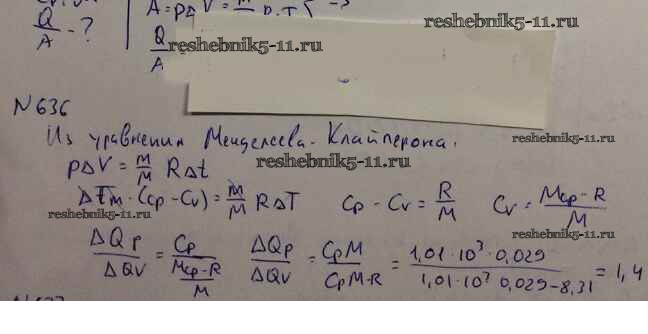 A = pΔV =
Q/A - ?
Q/A
reshebnik5-11.ru
reshebnik5-11.ru
N 636
Из уравнения Менделеева-Клайперона.
reshebnik5-11.ru
pΔV = m/M RΔt
reshebnik5-11.ru
ΔTm·(cp - cv) = m/M RΔT   cp - cv = R/M   cv = Mcp-R/M
reshebnik5-11.ru
reshebnik5-11.ru
ΔQp/ΔQv = cp/(Mcp-R/M)   ΔQp/ΔQv = cpM/cpM-R = 1,01·10³·0,029/1,01·10³ 0,029-8,31 = 1,4
reshebnik5-11.ru